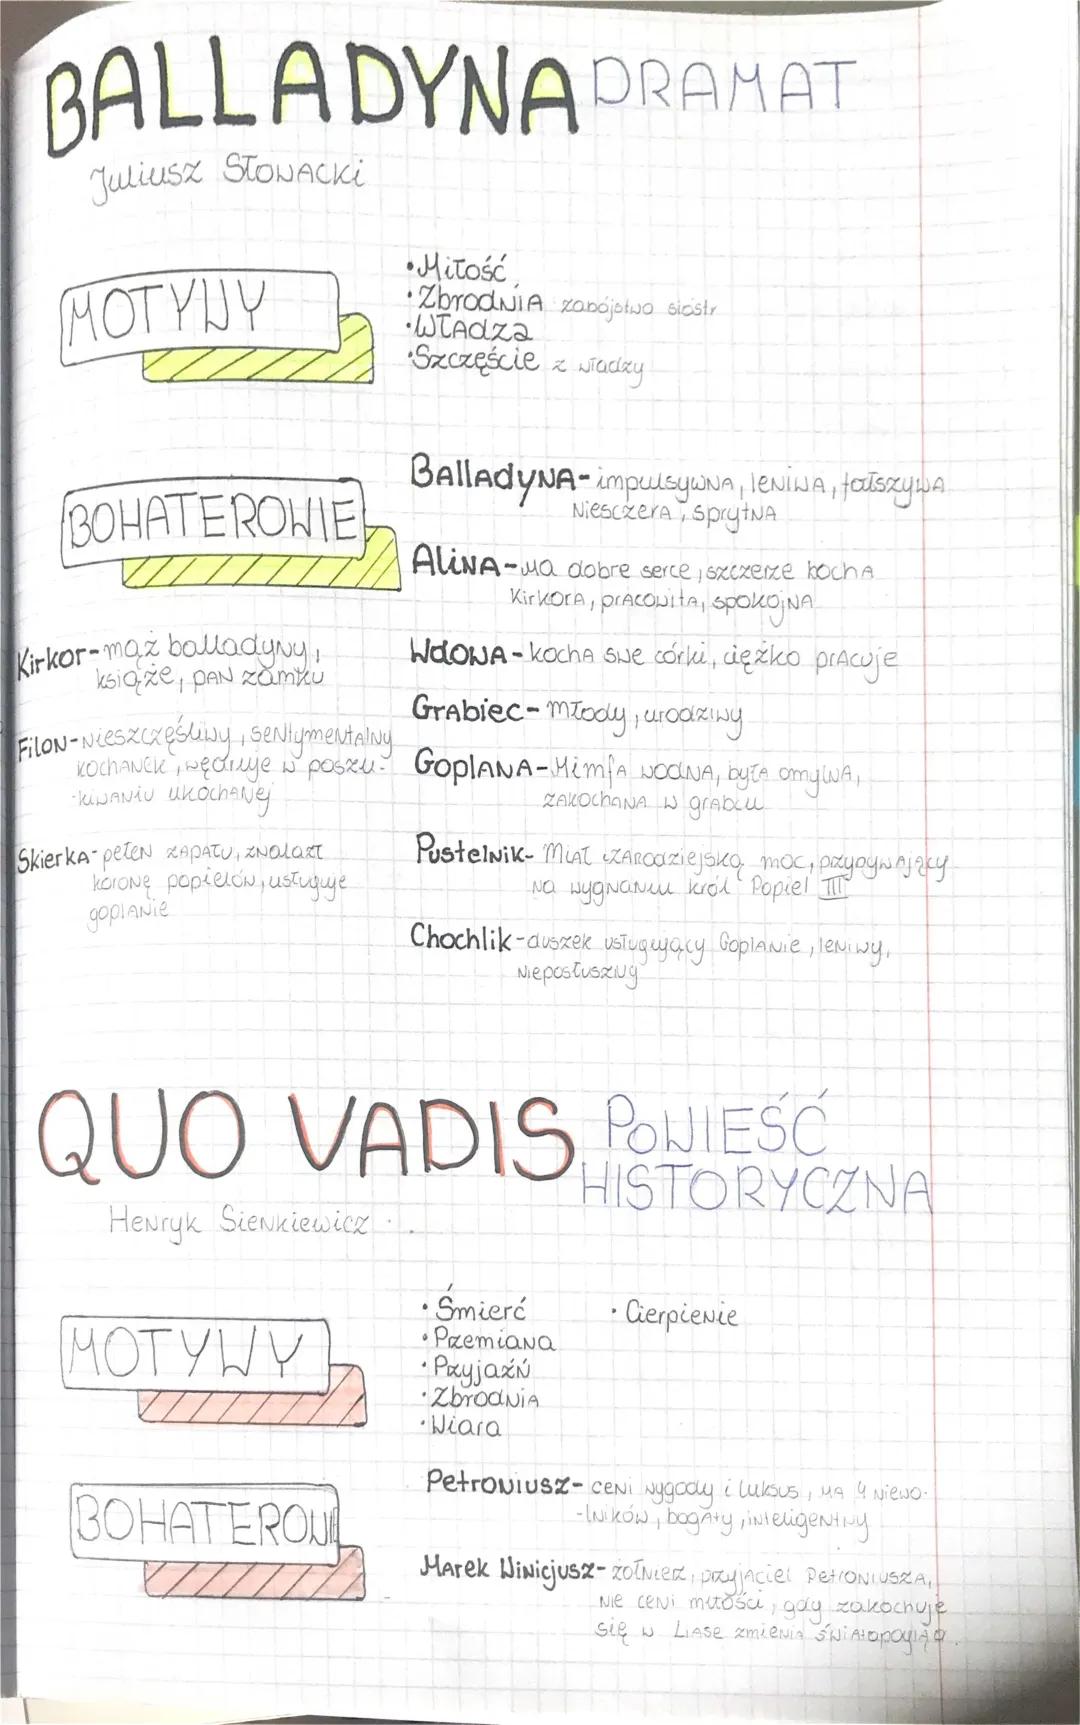 BALLADYNA DRAMAT
Juliusz Słowacki
MOTYWY
•Miłość
•Zbrodnia zabójstwo siostr
•Władza
•Szczęście z władzy
BOHATEROWIE
Balladyna- impulsywna, leniwa, fałszywa
niesczera, sprytna
Alina- ma dobre serce, szczerze kocha
Kirkora, pracowita, spokojna
Wdowa- kocha swe córki, ciężko pracuje
Grabiec- młody, urodziwy
Goplana- Nimfa wodna, była omylna,
zakochana w grabcu
Pustelnik- Miał czarodziejską moc, przybywający
na wygnaniu król Popiel III
Chochlik- duszek usługujący Goplanie, leniwy,
nieposłuszny
Kirkor- mąż balladyny,
książe, pan zamku
Filon- nieszczęśliwy, sentymentalny
kochanek, wędruje w poszu-
-kiwaniu ukochanej
Skierka- pełen zapału, znalazł
koronę popielów, usługuje
goplanie
QUO VADIS POWIEŚĆ
HISTORYCZNA
Henryk Sienkiewicz
MOTYWY
•Śmierć
•Przemiana
•Przyjaźń
•Zbrodnia
•Wiara
•Cierpienie
BOHATEROWIE
Petroniusz- ceni wygody i luksus, ma 4 niewo-
-lników, bogaty, inteligentny
Marek Winicjusz- żołnierz, przyjaciel Petroniusza,
nie ceni miłości, gdy zakochuje
się w Liase zmienia światopogląd.